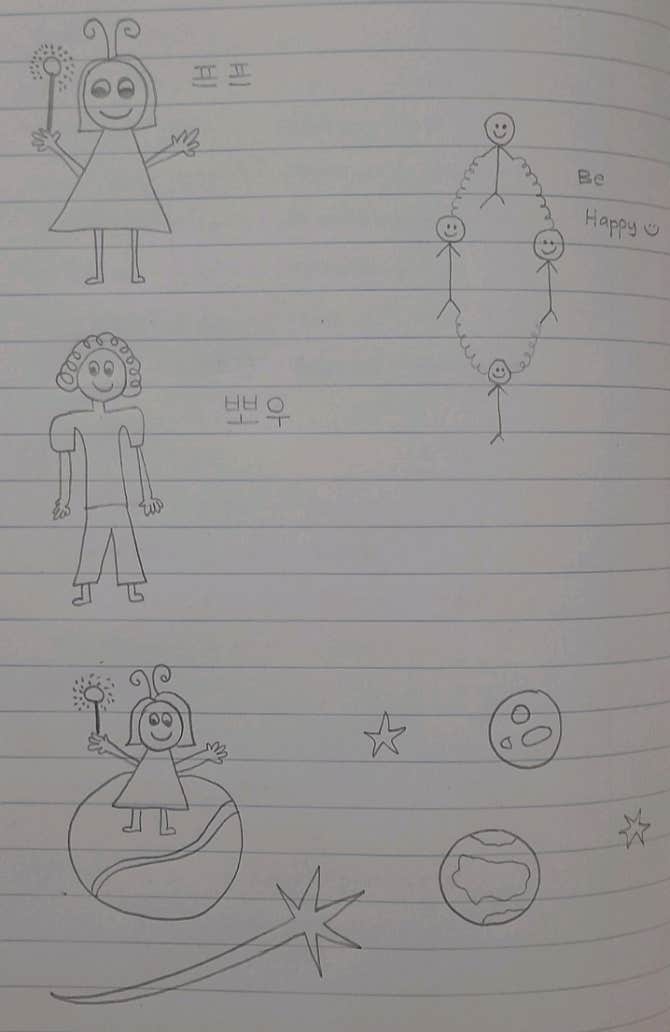 프프
Be
Happy
뽀우